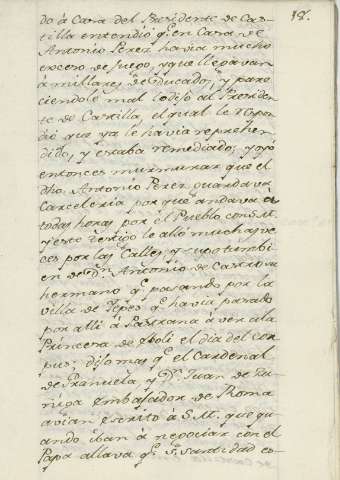 18.
do á Casa del Presidente de Cas-
tilla entendió q.e en Casa de
Antonio Perez havia mucho
exceso de juego, y que llegavan
á millares de ducados, y pare
ciendole mal lo dijo al Presiden
te de Castilla, el qual le respon
dió que ya le havia reprehen
dido, y estaba remediado; y oyó
entonces murmurar que el
dho. Antonio Perez guardava
Carceleria por que andava á
todas horas por el Pueblo con S.M.
y este testigo le alló muchas ve
ces por las Calles, y supo tambi
en de D.n Antonio de Castro su
hermano q.e pasando por la
Villa de Yepes q.e havia pasado
por alli á Pastrana á ver á la
Princesa de Eboli el dia del Cor
pus: dijo mas q.e el Cardenal
de Granuela, y D.n Juan de Zu
ñiga Embajador de Roma
avian escrito á S.M. que qu
ando iban á negociar con el
Papa allava q.e S.u Santidad es-